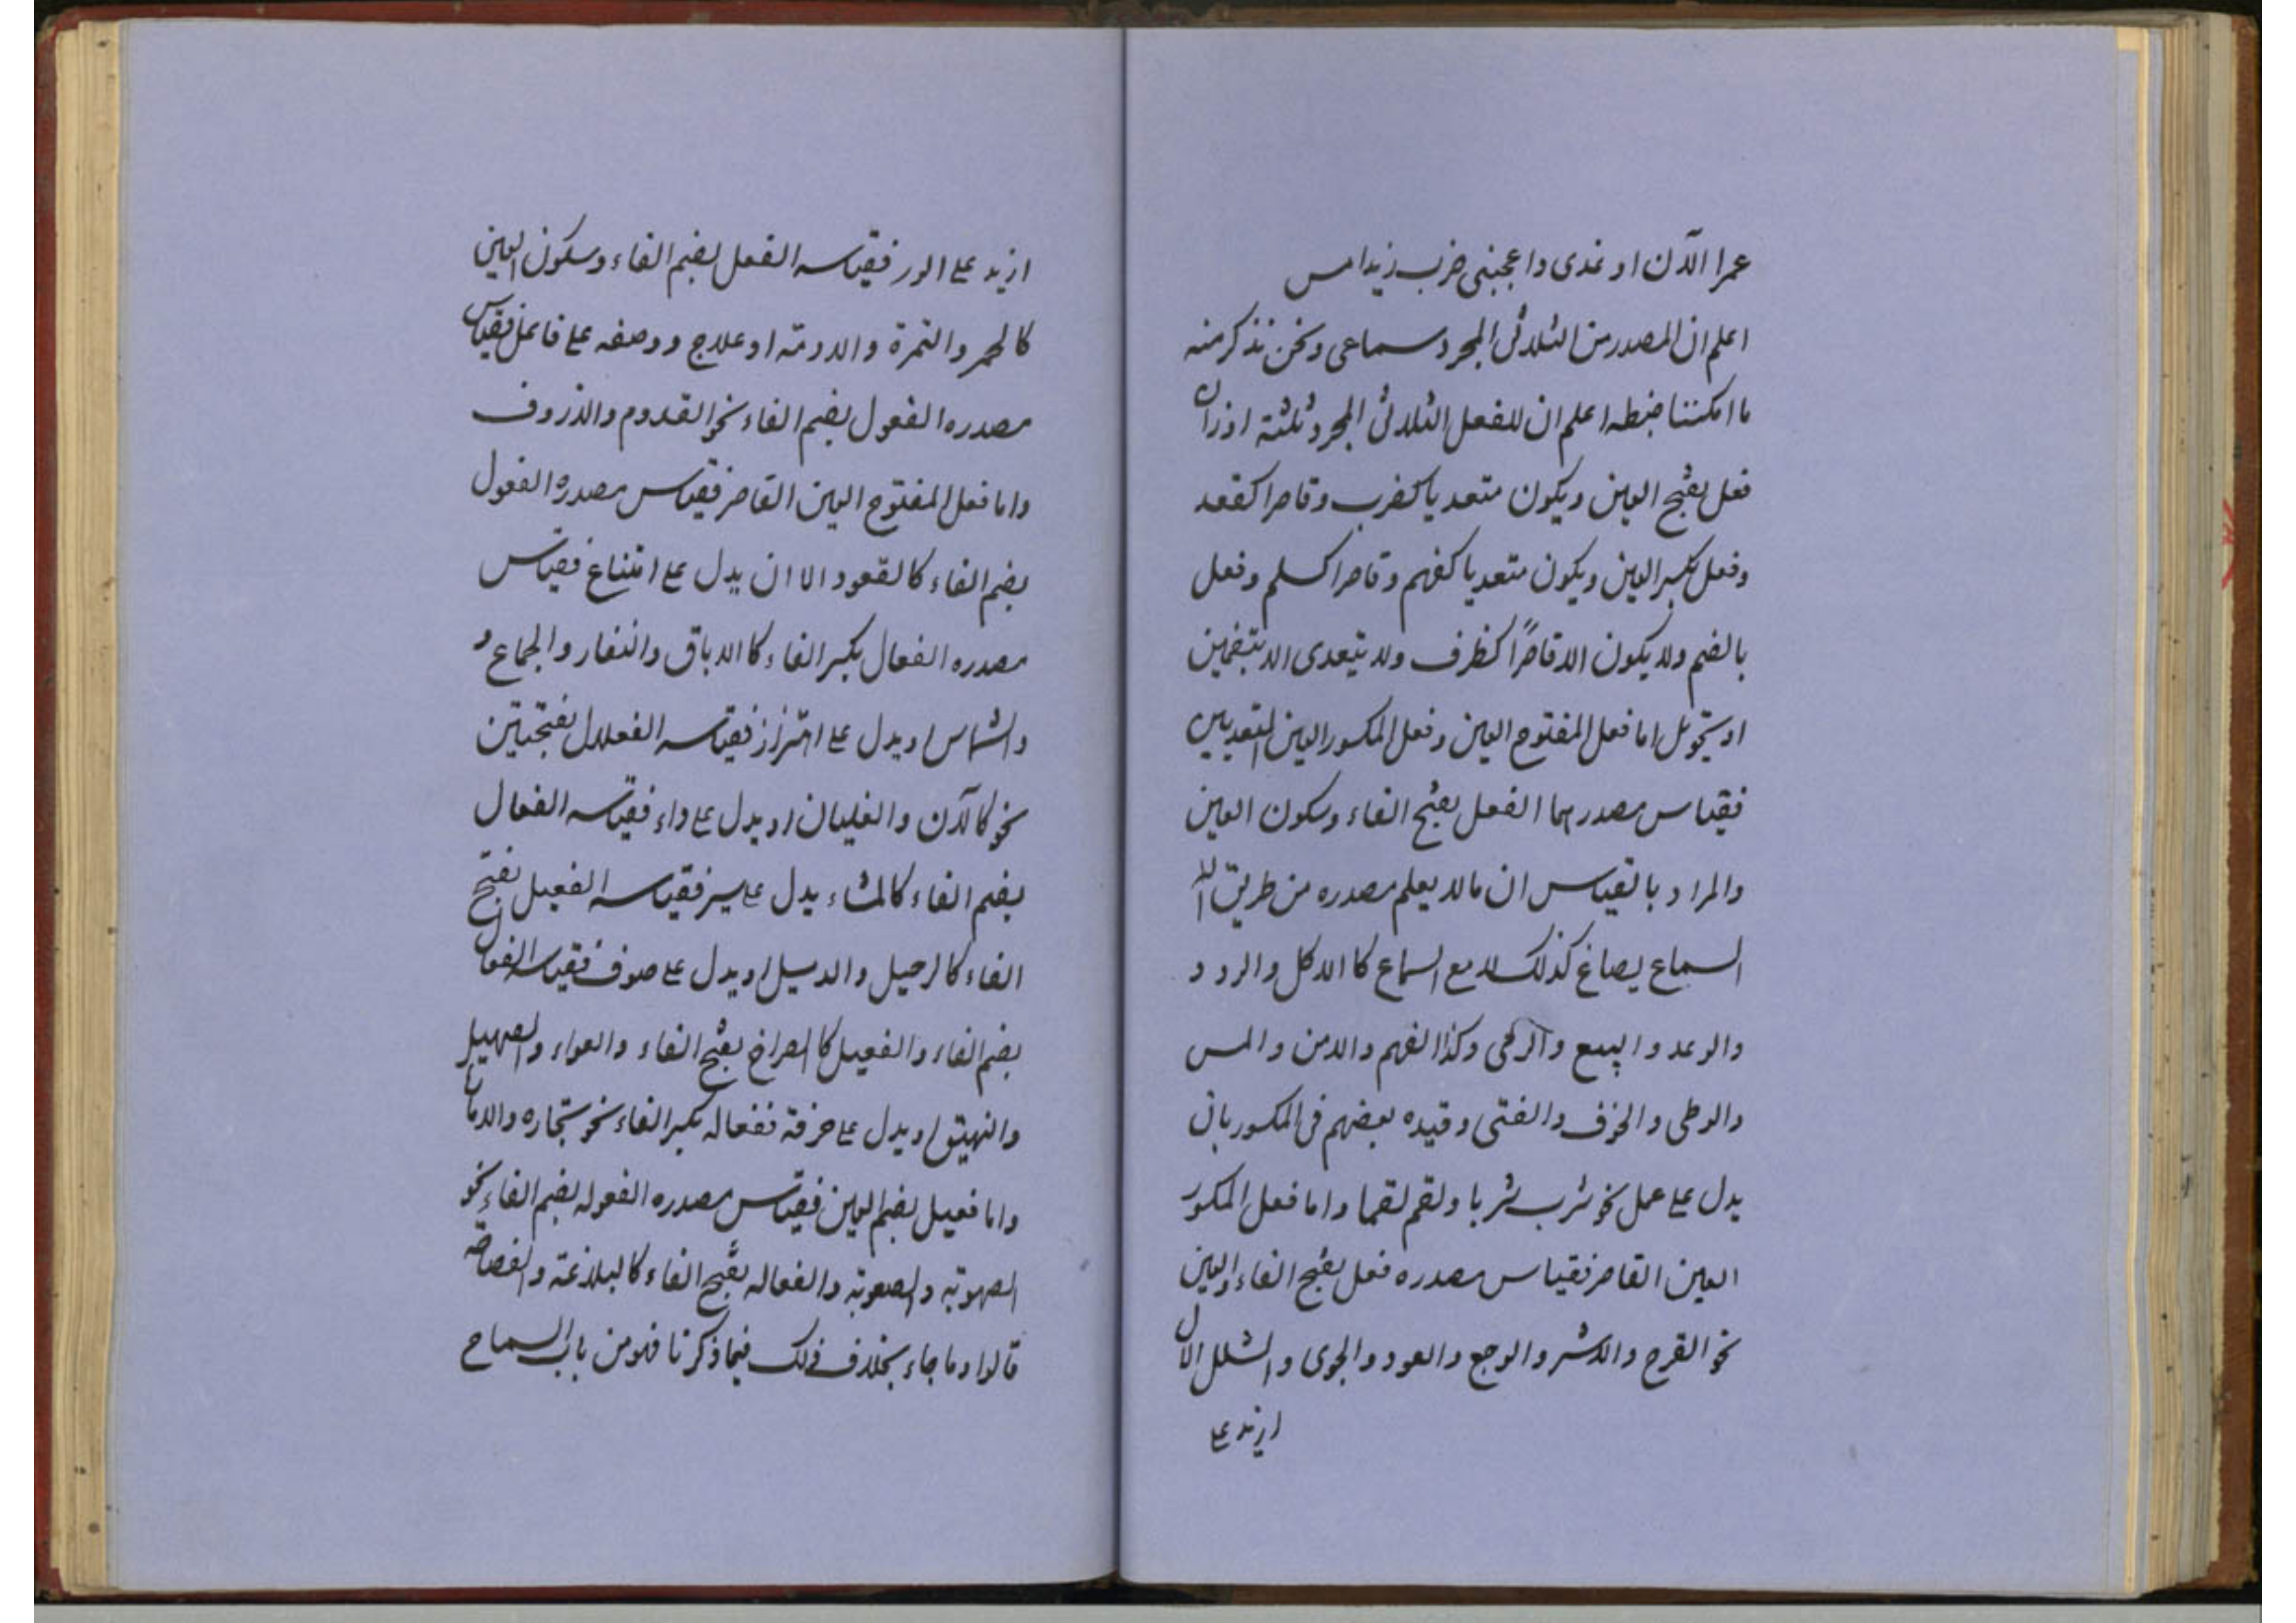 عمرا الآن او غدى واعجبنى ضرب زيد امس
اعلم ان المصدر من الثلاثى المجرد سماعى ونحن نذكر منه
ما امكننا ضبطه اعلم ان للفعل الثلاثى المجرد ثلثة اوزان
فعل بفتح العين ويكون متعديا كضرب وقاصرا كقعد
وفعل بكسر العين ويكون متعديا كفهم وقاصرا كسلم وفعل
بالضم ولا يكون الا قاصرًا كظرف ولا يتعدى الا بتضمين
او بتحويل اما فعل المفتوح العين وفعل المكسور العين المتعديين
فقياس مصدرهما الفعل بفتح الفاء وسكون العين
والمراد بالقياس ان مالا يعلم مصدره من طريق
السماع يصاغ كذلك لا مع السماع كا الاكل والرد و
والوعد والبيع والرمى وكذا الفهم والامن والمس
والوطى والخوف والفتى وقيده بعضهم فى المكسور بان
يدل على عمل نحو شرب شربا ولقم لقما واما فعل المكسور
العين القاصر فقياس مصدره فعل بفتح الفاء والعين
نحو القرح والاشر والوجع والعود والجوى والشلل الا
ازيد على
ازيد على الور فقياسه الفعل بضم الفاء وسكون العين
كالحمر والتمرة والادمة او علاج ووصفه على فاعل فقياس
مصدره الفعول بضم الفاء نحو القدوم والذروف
واما فعل المفتوح العين القاصر فقياس مصدره الفعول
بضم الفاء كالقعود الا ان يدل على امتناع فقياس
مصدره الفعال بكسر الفاء كا الاباق والنفار والجماع و
والشماس او يدل على اهتزاز فقياسه الفعلال بفتحتين
نحو كالآن والغليان او يدل على داء فقياسه الفعال
بضم الفاء كالمشاء يدل على سير فقياسه الفعيل بفتح
الفاء كالرحيل والدسيل او يدل على صوف فقياسه الفعال
بضم الفاء والفعيل كا الصراخ بفتح الفاء والعواء والصهيل
والنهيق او يدل على حرفة ففعاله بكسر الفاء نحو تجاره
واما فعيل بضم العين فقياس مصدره الفعوله بضم الفاء نحو
الصهوبة والصعوبة والفعاله بفتح الفاء كالبلاغة والفصاحة
قالوا وما جاء بخلاف ذلك فيما ذكرنا فهو من باب السماح